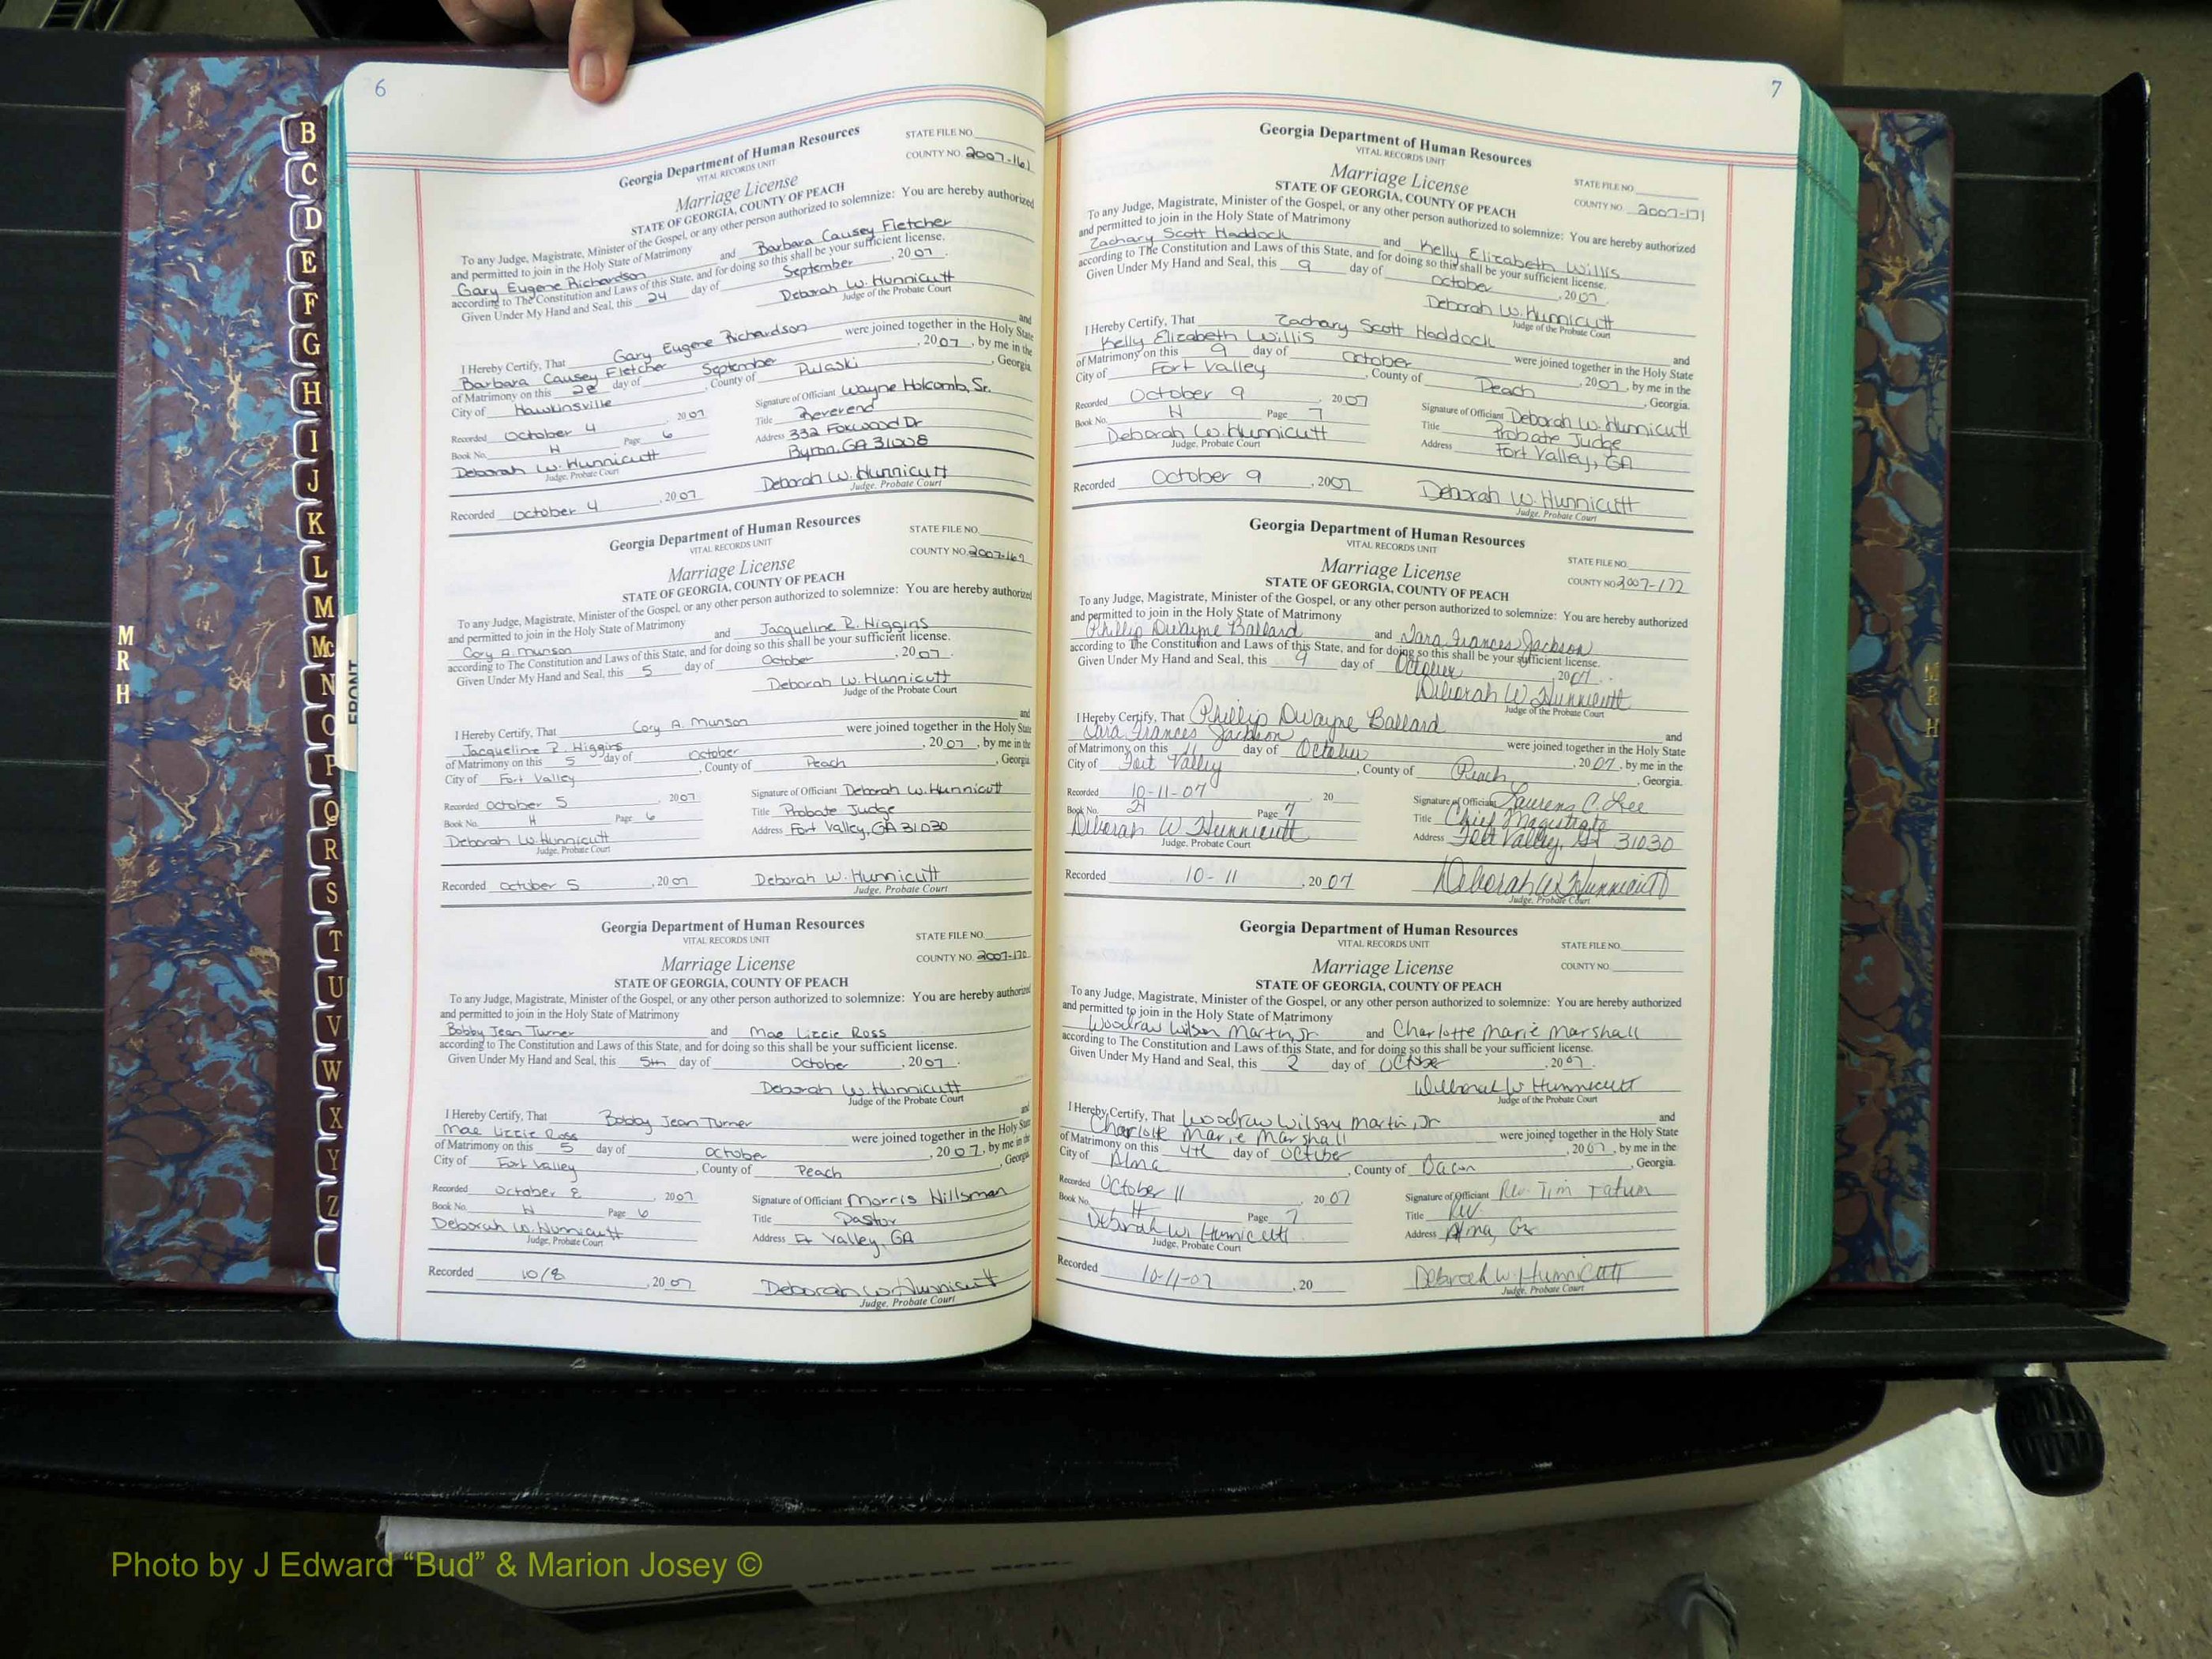 6
Georgia Department of Human Resources
VITAL RECORDS UNIT
STATE FILE NO.
COUNTY NO. 2007-161
Marriage License
STATE OF GEORGIA, COUNTY OF PEACH
To any Judge, Magistrate, Minister of the Gospel, or any other person authorized to solemnize: You are hereby authorized
and permitted to join in the Holy State of Matrimony
Gary Eugene Richardson and Barbara Causey Fletcher
according to The Constitution and Laws of this State, and for doing so this shall be your sufficient license.
Given Under My Hand and Seal, this 24 day of September, 2007.
Deborah W. Hunnicutt
Judge of the Probate Court
I Hereby Certify, That Gary Eugene Richardson and
Barbara Causey Fletcher were joined together in the Holy State
of Matrimony on this 28 day of September, 2007, by me in the
City of Hawkinsville, County of Pulaski, Georgia.
Recorded October 4, 2007
Book No. H Page 6
Deborah W. Hunnicutt
Judge, Probate Court
Signature of Officiant Wayne Holcomb, Sr.
Title Reverend
Address 332 Foxwood Dr
Byron, GA 31008
Recorded October 4, 2007
Deborah W. Hunnicutt
Judge, Probate Court
Georgia Department of Human Resources
VITAL RECORDS UNIT
STATE FILE NO.
COUNTY NO. 2007-169
Marriage License
STATE OF GEORGIA, COUNTY OF PEACH
To any Judge, Magistrate, Minister of the Gospel, or any other person authorized to solemnize: You are hereby authorized
and permitted to join in the Holy State of Matrimony
Cory A. Munson and Jacqueline R. Higgins
according to The Constitution and Laws of this State, and for doing so this shall be your sufficient license.
Given Under My Hand and Seal, this 5 day of October, 2007.
Deborah W. Hunnicutt
Judge of the Probate Court
I Hereby Certify, That Cory A. Munson and
Jacqueline R. Higgins were joined together in the Holy State
of Matrimony on this 5 day of October, 2007, by me in the
City of Fort Valley, County of Peach, Georgia
Recorded October 5, 2007
Book No. H Page 6
Deborah W. Hunnicutt
Judge, Probate Court
Signature of Officiant Deborah W. Hunnicutt
Title Probate Judge
Address Fort Valley, GA 31030
Recorded October 5, 2007
Deborah W. Hunnicutt
Judge, Probate Court
Georgia Department of Human Resources
VITAL RECORDS UNIT
STATE FILE NO.
COUNTY NO. 2007-170
Marriage License
STATE OF GEORGIA, COUNTY OF PEACH
To any Judge, Magistrate, Minister of the Gospel, or any other person authorized to solemnize: You are hereby authorized
and permitted to join in the Holy State of Matrimony
Bobby Jean Turner and Mae Lizzie Ross
according to The Constitution and Laws of this State, and for doing so this shall be your sufficient license.
Given Under My Hand and Seal, this 5th day of October, 2007.
Deborah W. Hunnicutt
Judge of the Probate Court
I Hereby Certify, That Bobby Jean Turner and
Mae Lizzie Ross were joined together in the Holy State
of Matrimony on this 5 day of October, 2007, by me in the
City of Fort Valley, County of Peach, Georgia
Recorded October 8, 2007
Book No. H Page 6
Deborah W. Hunnicutt
Judge, Probate Court
Signature of Officiant Morris Hillsman
Title Pastor
Address Ft Valley, GA
Recorded 10/8, 2007
Deborah W. Hunnicutt
Judge, Probate Court
7
Georgia Department of Human Resources
VITAL RECORDS UNIT
Marriage License
STATE FILE NO.
COUNTY NO. 2007-171
STATE OF GEORGIA, COUNTY OF PEACH
To any Judge, Magistrate, Minister of the Gospel, or any other person authorized to solemnize: You are hereby authorized
and permitted to join in the Holy State of Matrimony
Zachary Scott Haddock and Kelly Elizabeth Willis
according to The Constitution and Laws of this State, and for doing so this shall be your sufficient license.
Given Under My Hand and Seal, this 9 day of October, 2007.
Deborah W. Hunnicutt
Judge of the Probate Court
I Hereby Certify, That Zachary Scott Haddock and
Kelly Elizabeth Willis were joined together in the Holy State
of Matrimony on this 9 day of October, 2007, by me in the
City of Fort Valley, County of Peach, Georgia.
Recorded October 9, 2007
Book No. H Page 7
Deborah W. Hunnicutt
Judge, Probate Court
Signature of Officiant Deborah W. Hunnicutt
Title Probate Judge
Address Fort Valley, GA
Recorded October 9, 2007
Deborah W. Hunnicutt
Judge, Probate Court
Georgia Department of Human Resources
VITAL RECORDS UNIT
Marriage License
STATE FILE NO.
COUNTY NO. 2007-172
STATE OF GEORGIA, COUNTY OF PEACH
To any Judge, Magistrate, Minister of the Gospel, or any other person authorized to solemnize: You are hereby authorized
and permitted to join in the Holy State of Matrimony
Phillip Dwayne Ballard and Tara Frances Jackson
according to The Constitution and Laws of this State, and for doing so this shall be your sufficient license.
Given Under My Hand and Seal, this 9 day of October, 2007.
Deborah W. Hunnicutt
Judge of the Probate Court
I Hereby Certify, That Phillip Dwayne Ballard and
Tara Frances Jackson were joined together in the Holy State
of Matrimony on this 11 day of October, 2007, by me in the
City of Fort Valley, County of Peach, Georgia.
Recorded 10-11-07, 20
Book No. H Page 7
Deborah W Hunnicutt
Judge, Probate Court
Signature of Officiant Laurens C. Lee
Title Chief Magistrate
Address Fort Valley, GA 31030
Recorded 10-11, 2007
Deborah W Hunnicutt
Judge, Probate Court
Georgia Department of Human Resources
VITAL RECORDS UNIT
Marriage License
STATE FILE NO.
COUNTY NO.
STATE OF GEORGIA, COUNTY OF PEACH
To any Judge, Magistrate, Minister of the Gospel, or any other person authorized to solemnize: You are hereby authorized
and permitted to join in the Holy State of Matrimony
Woodraw Wilson Martin, Jr. and Charlotte Marie Marshall
according to The Constitution and Laws of this State, and for doing so this shall be your sufficient license.
Given Under My Hand and Seal, this 2 day of October, 2007.
Deborah W Hunnicutt
Judge of the Probate Court
I Hereby Certify, That Woodraw Wilson Martin, Jr and
Charlotte Marie Marshall were joined together in the Holy State
of Matrimony on this 4th day of October, 2007, by me in the
City of Alma, County of Bacon, Georgia.
Recorded October 11, 2007
Book No. H Page 7
Deborah W. Hunnicutt
Judge, Probate Court
Signature of Officiant Rev. Tim Tatum
Title Rev
Address Alma, Ga
Recorded 10-11-07, 20
Deborah W. Hunnicutt
Judge, Probate Court
B
C
D
E
F
G
H
I
J
K
L
M
Mc
N
O
P
Q
R
S
T
U
V
W
X
Y
Z
FRONT
M
R
H
M
R
H
Photo by J Edward “Bud” & Marion Josey ©